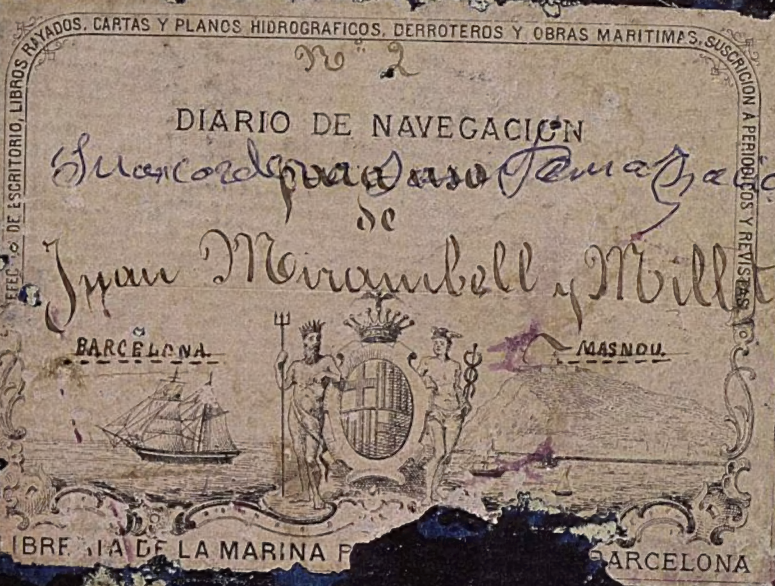 EFEC DE ESCRITORIO, LIBROS RAYADOS, CARTAS Y PLANOS HIDROGRAFICOS, DERROTEROS Y OBRAS MARITIMAS, SUSCRICION A PERIODICOS Y REVISTAS
Nº 2
DIARIO DE NAVEGACION
para uso
de
Juan Mirambell y Millet
BARCELONA. MASNOU.
LIBRERIA DE LA MARINA BARCELONA